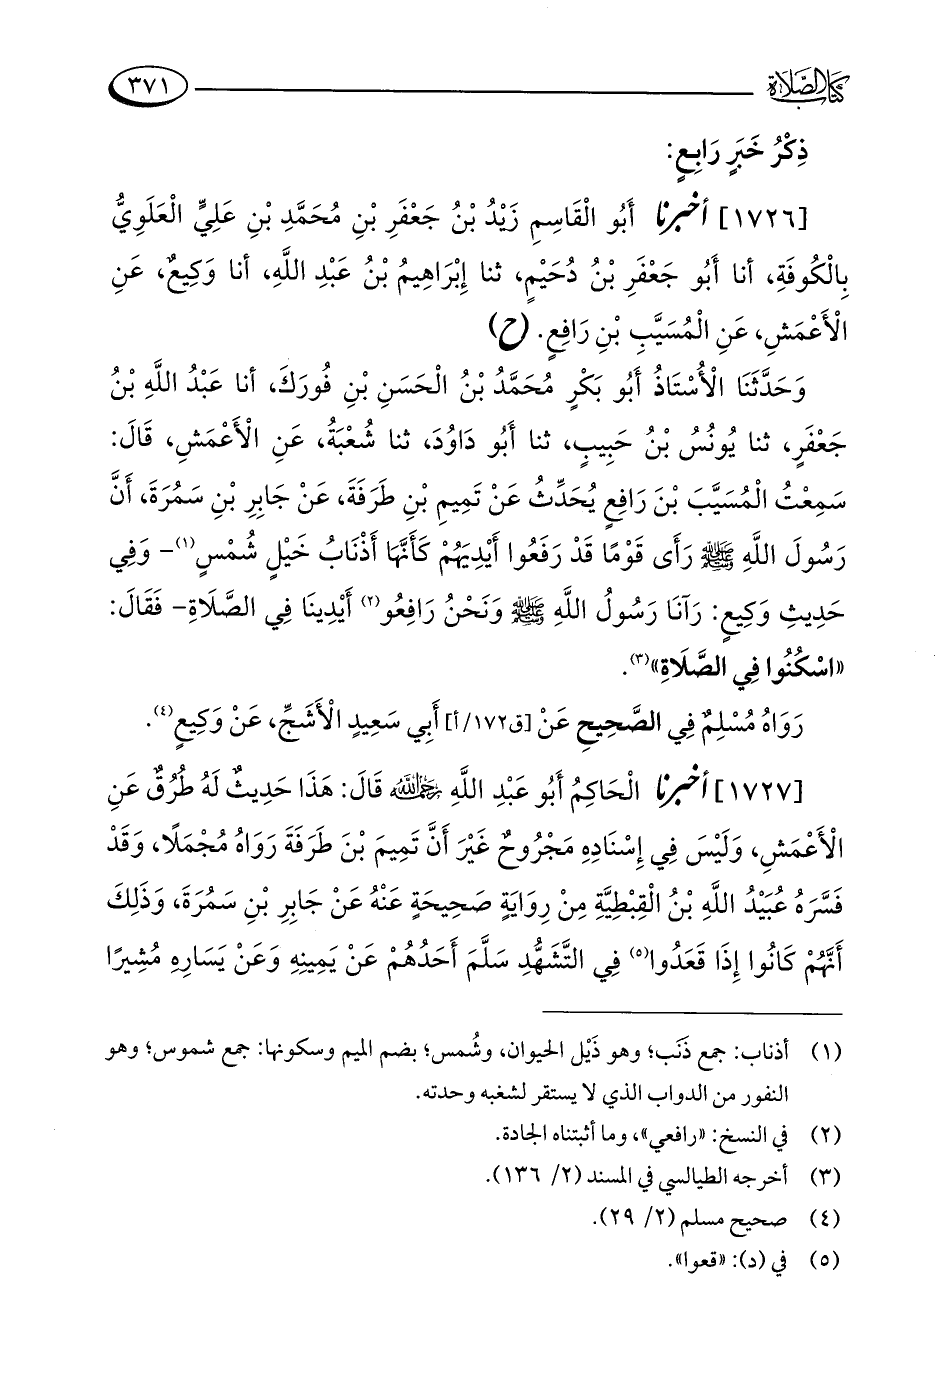 كتاب الصلاة ٣٧١
ذِكْرُ خَبَرٍ رَابِعٍ:
[١٧٢٦] أخبرنا أَبُو الْقَاسِمِ زَيْدُ بْنُ جَعْفَرِ بْنِ مُحَمَّدِ بْنِ عَلِيٍّ الْعَلَوِيُّ
بِالْكُوفَةِ، أنا أَبُو جَعْفَرِ بْنُ دُحَيْمٍ، ثنا إِبْرَاهِيمُ بْنُ عَبْدِ اللَّهِ، أنا وَكِيعٌ، عَنِ
الْأَعْمَشِ، عَنِ الْمُسَيَّبِ بْنِ رَافِعٍ. (ح)
وَحَدَّثَنَا الْأُسْتَاذُ أَبُو بَكْرٍ مُحَمَّدُ بْنُ الْحَسَنِ بْنِ فُورَكَ، أنا عَبْدُ اللَّهِ بْنُ
جَعْفَرٍ، ثنا يُونُسُ بْنُ حَبِيبٍ، ثنا أَبُو دَاوُدَ، ثنا شُعْبَةُ، عَنِ الْأَعْمَشِ، قَالَ:
سَمِعْتُ الْمُسَيَّبَ بْنَ رَافِعٍ يُحَدِّثُ عَنْ تَمِيمِ بْنِ طَرَفَةَ، عَنْ جَابِرِ بْنِ سَمُرَةَ، أَنَّ
رَسُولَ اللَّهِ ﷺ رَأَى قَوْمًا قَدْ رَفَعُوا أَيْدِيَهُمْ كَأَنَّهَا أَذْنَابُ خَيْلٍ شُمْسٍ(١)- وَفِي
حَدِيثِ وَكِيعٍ: رَآنَا رَسُولُ اللَّهِ ﷺ وَنَحْنُ رَافِعُو(٢) أَيْدِينَا فِي الصَّلَاةِ- فَقَالَ:
«اسْكُنُوا فِي الصَّلَاةِ»(٣).
رَوَاهُ مُسْلِمٌ فِي الصَّحِيحِ عَنْ [ق١٧٢/أ] أَبِي سَعِيدٍ الْأَشَجِّ، عَنْ وَكِيعٍ(٤).
[١٧٢٧] أخبرنا الْحَاكِمُ أَبُو عَبْدِ اللَّهِ رَحِمَهُ اللَّهُ قَالَ: هَذَا حَدِيثٌ لَهُ طُرُقٌ عَنِ
الْأَعْمَشِ، وَلَيْسَ فِي إِسْنَادِهِ مَجْرُوحٌ غَيْرَ أَنَّ تَمِيمَ بْنَ طَرَفَةَ رَوَاهُ مُجْمَلًا، وَقَدْ
فَسَّرَهُ عُبَيْدُ اللَّهِ بْنُ الْقِبْطِيَّةِ مِنْ رِوَايَةٍ صَحِيحَةٍ عَنْهُ عَنْ جَابِرِ بْنِ سَمُرَةَ، وَذَلِكَ
أَنَّهُمْ كَانُوا إِذَا قَعَدُوا(٥) فِي التَّشَهُّدِ سَلَّمَ أَحَدُهُمْ عَنْ يَمِينِهِ وَعَنْ يَسَارِهِ مُشِيرًا
(١) أذناب: جمع ذَنَب؛ وهو ذَيْل الحيوان، وشُمس؛ بضم الميم وسكونها: جمع شموس؛ وهو
النفور من الدواب الذي لا يستقر لشغبه وحدته.
(٢) في النسخ: «رافعي»، وما أثبتناه الجادة.
(٣) أخرجه الطيالسي في المسند (٢/ ١٣٦).
(٤) صحيح مسلم (٢/ ٢٩).
(٥) في (د): «قعوا».